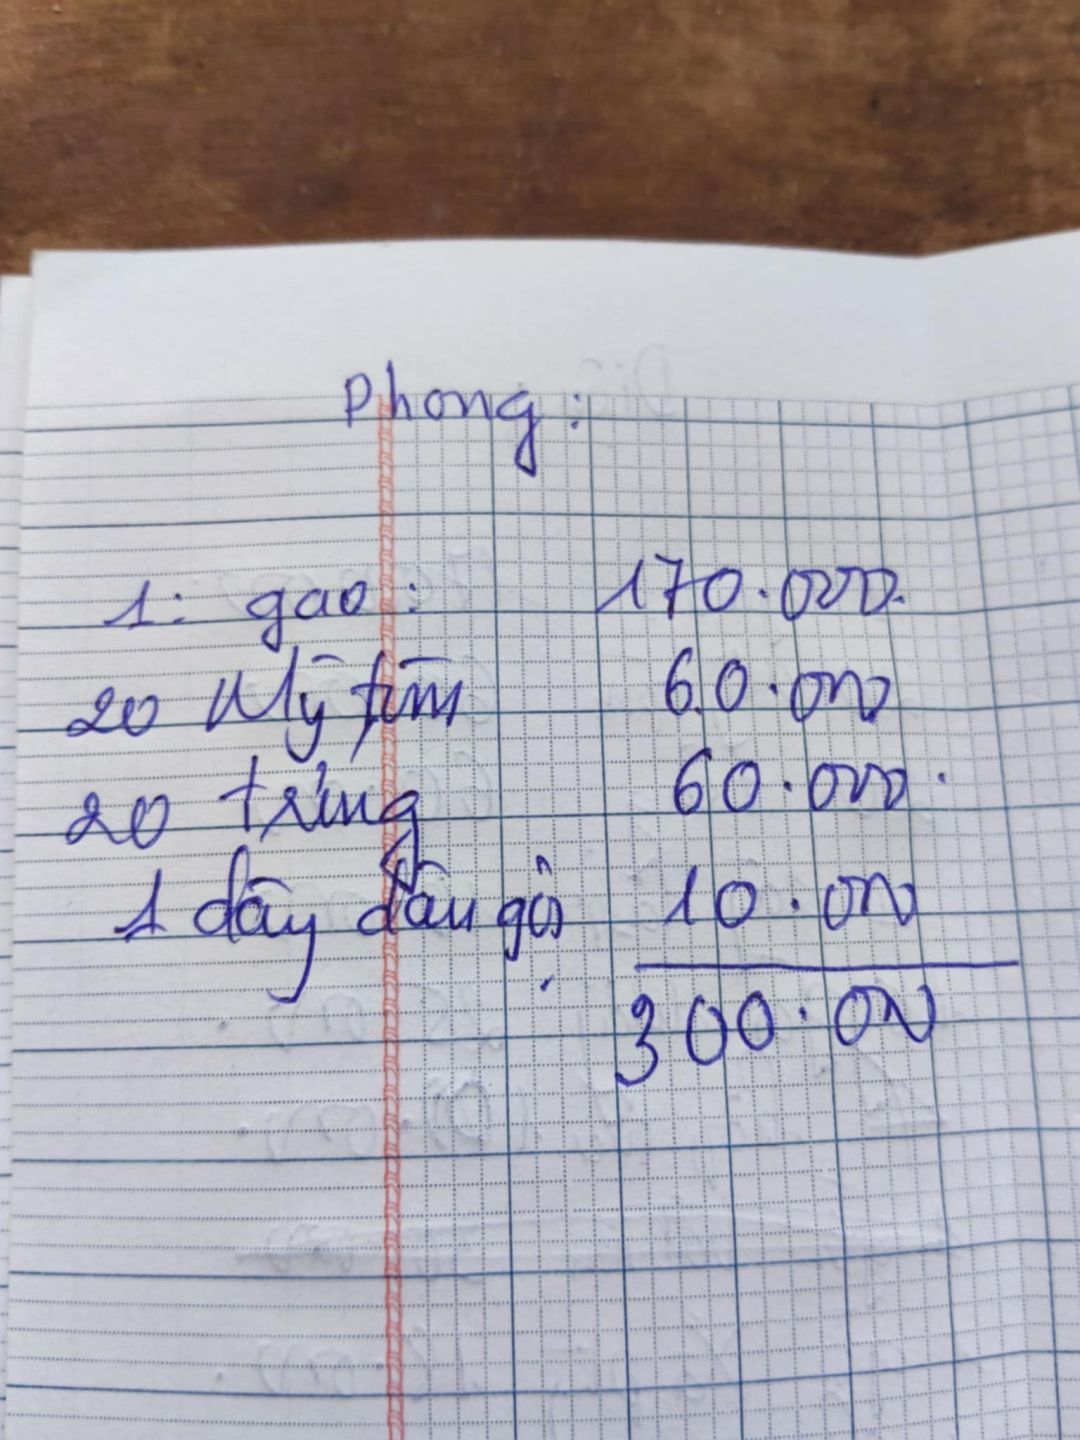 Phong:
1: gao: 170.000.
20 Mỹ tôm 60.000
20 trứng 60.000.
1 dây dầu gội 10.000
300.000